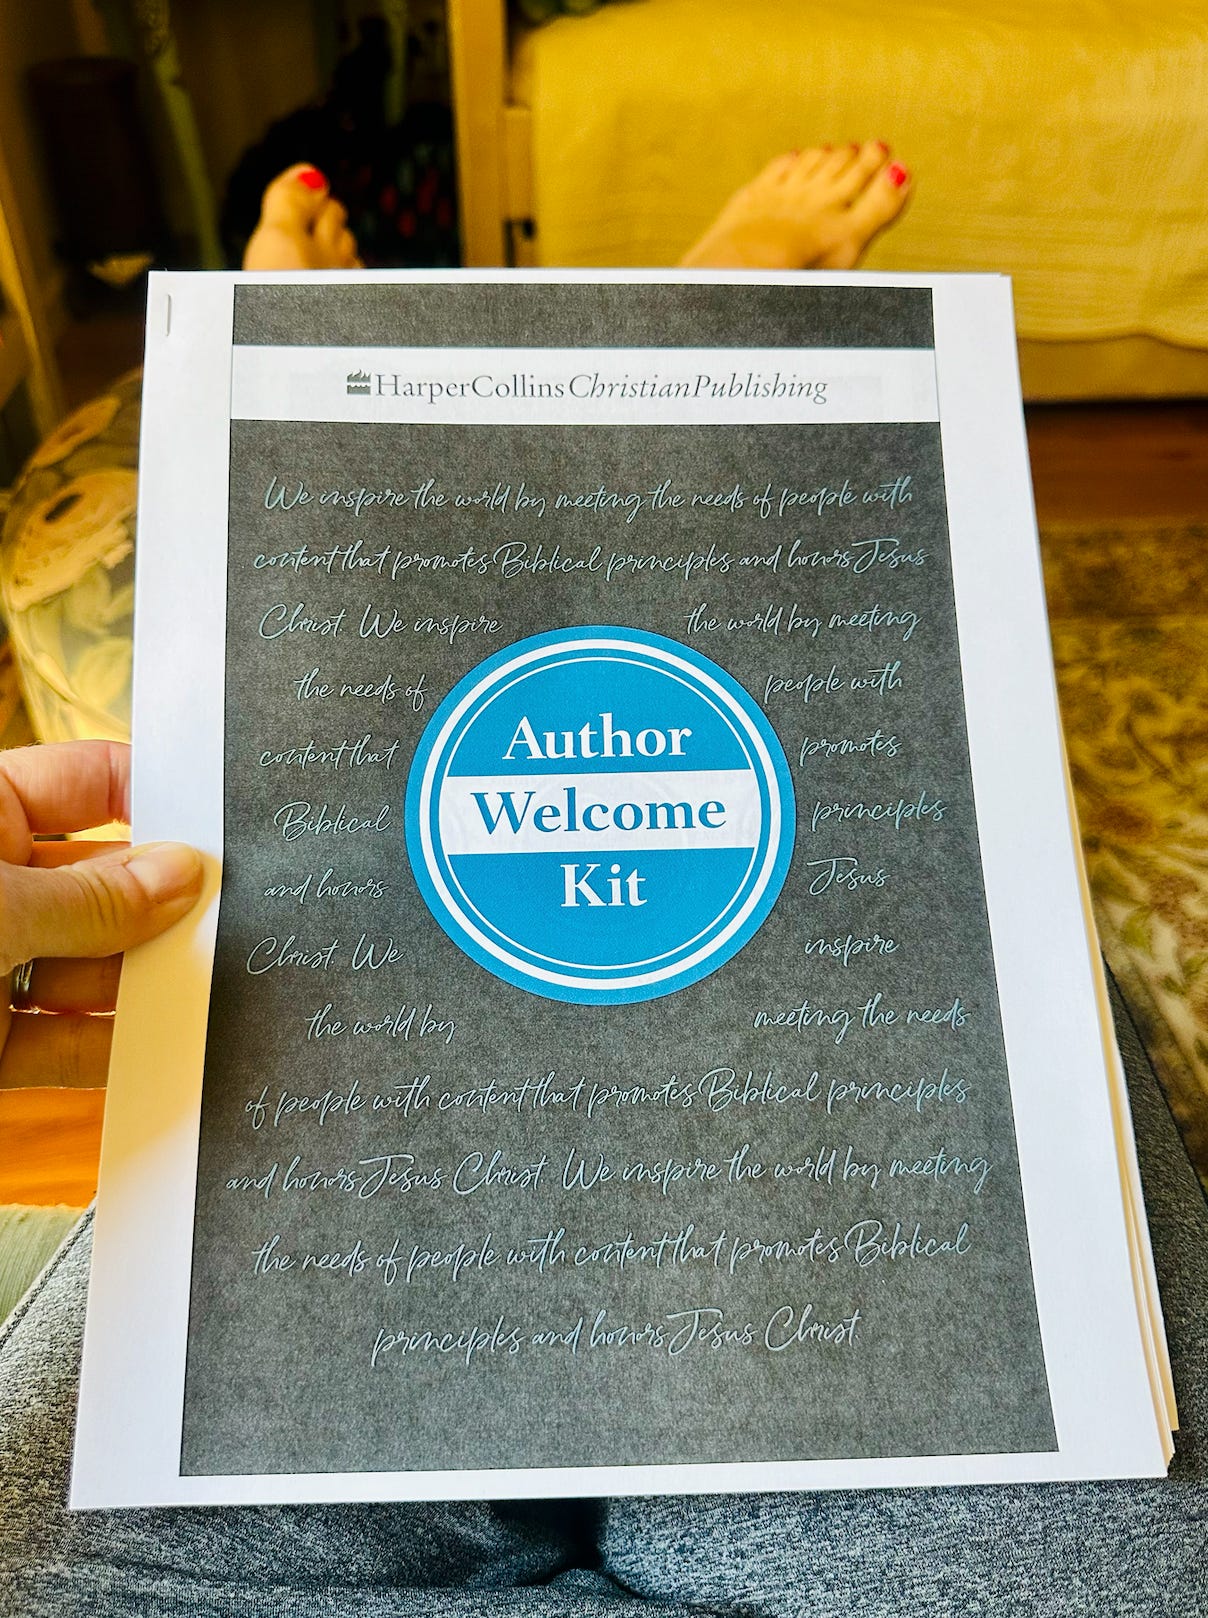 HarperCollins Christian Publishing
We inspire the world by meeting the needs of people with
content that promotes Biblical principles and honors Jesus
Christ. We inspire the world by meeting
the needs of people with
content that promotes
Biblical principles
and honors Jesus
Christ. We inspire
the world by meeting the needs
of people with content that promotes Biblical principles
and honors Jesus Christ. We inspire the world by meeting
the needs of people with content that promotes Biblical
principles and honors Jesus Christ.
Author
Welcome
Kit